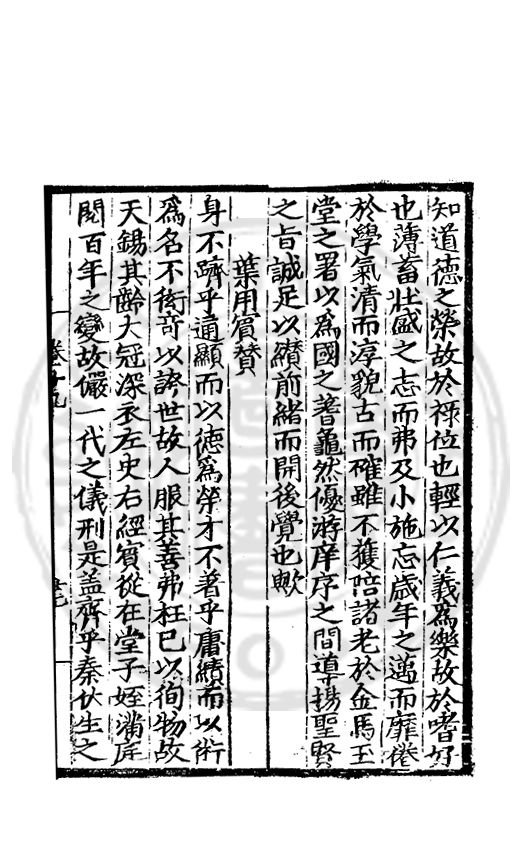 知道德之榮故於祿位也輕以仁義爲樂故於嗜好
也薄蓄壯盛之志而弗及小施忘歲年之邁而靡倦
於學氣清而淳貌古而確雖不獲陪諸老於金馬玉
堂之署以爲國之蓍龜然優游庠序之間導揚聖賢
之旨誠足以纘前緒而開後覺也歟
葉用賓贊
身不躋乎通顯而以德爲榮才不著乎庸績而以術
爲名不衒奇以誇世故人服其善弗枉已以徇物故
天錫其齡大冠深衣左史右經賓從在堂子姪滿庭
閱百年之變故儼一代之儀刑是盖齊乎秦伏生之